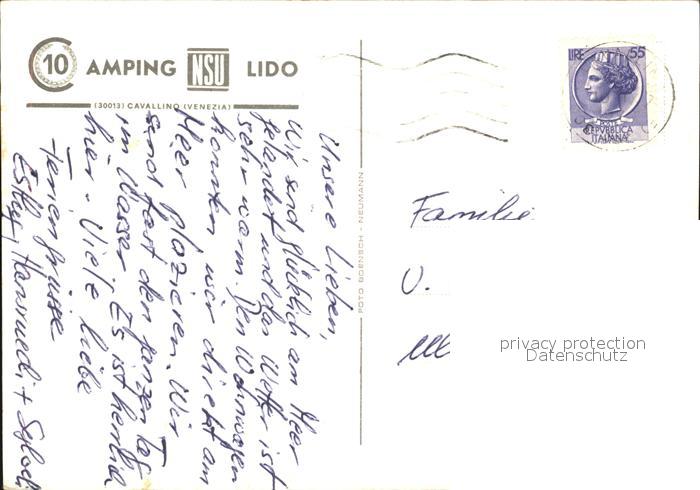 CAMPING NSU LIDO
10
(30013) CAVALLINO (VENEZIA)
Unsere Lieben,
Wir sind glücklich am Meer
gelandet und das Wetter ist
sehr warm. Den Wohnwagen
konnten wir direkt am
Meer plazieren. Wir
sind fast den ganzen Tag
im Wasser. Es ist herrlich
hier. Viele liebe
Feriengrüsse
Esthy, Hansruedi +
FOTO BOENSCH - NEUMANN
LIRE 55
POSTE
REPVBBLICA
ITALIANA
Familie
U.
privacy protection
Datenschutz